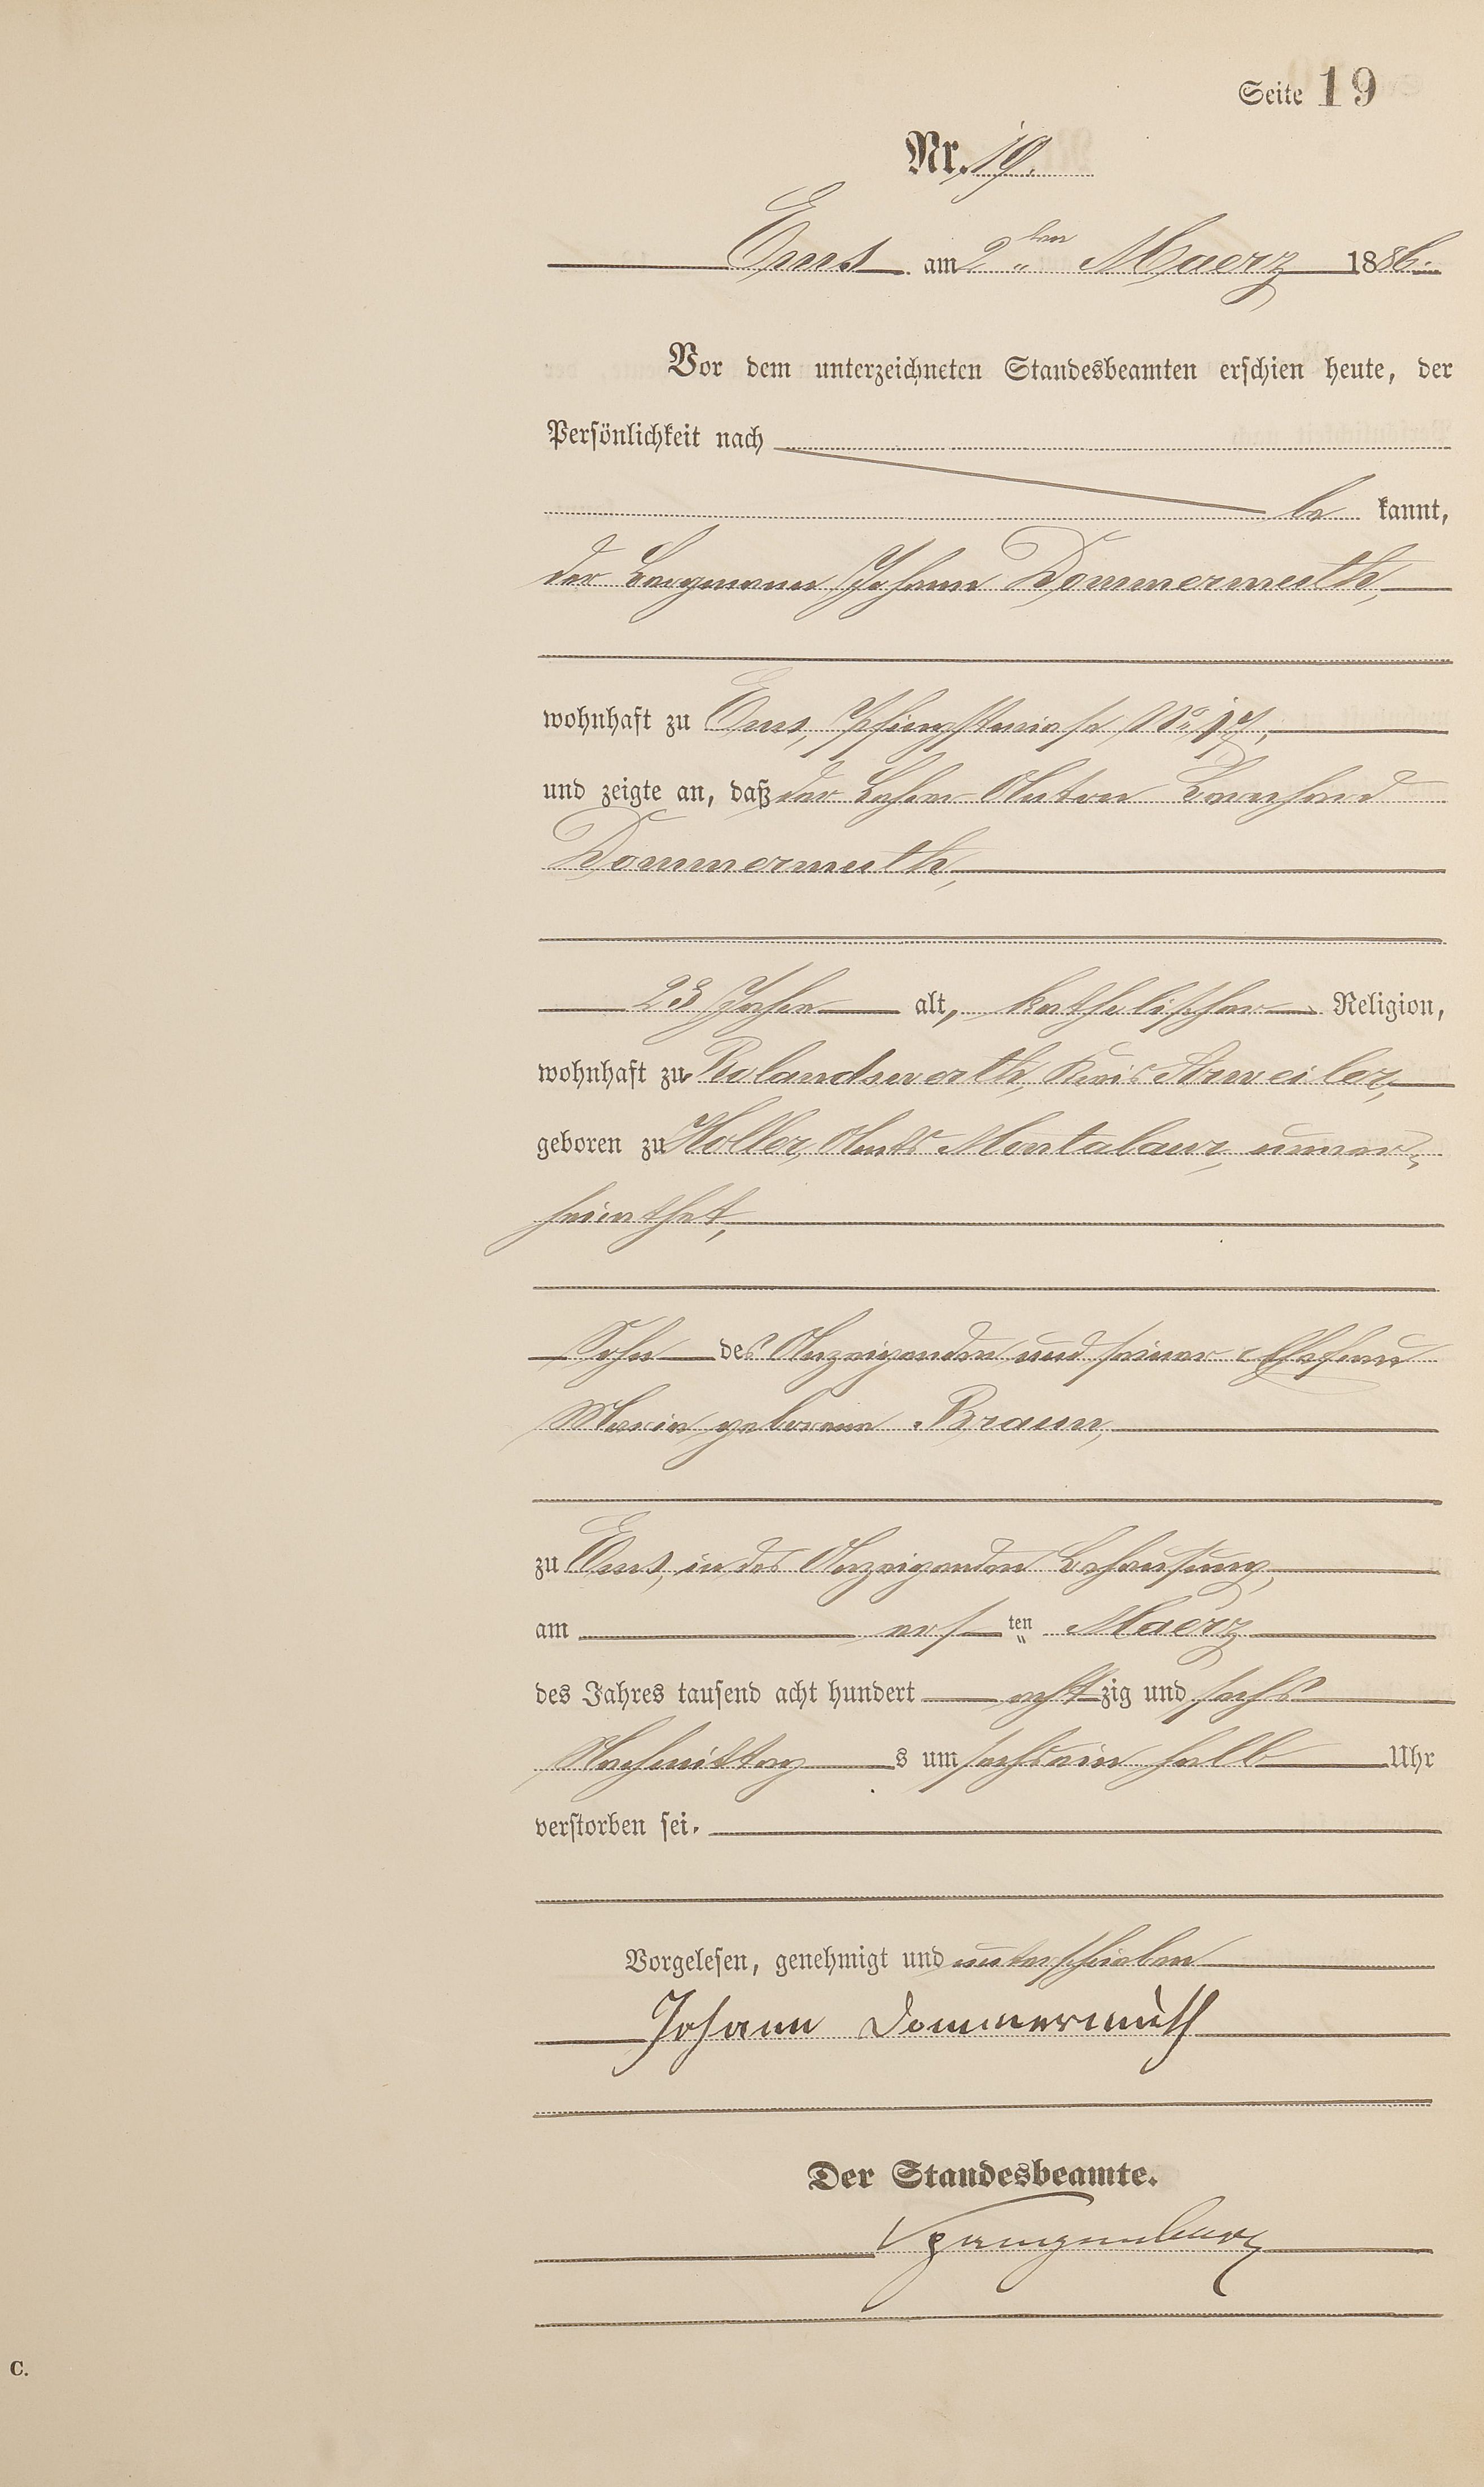 Seite 19
Nr. 19.
Ems am 2ten Maerz 1886.
Vor dem unterzeichneten Standesbeamten erschien heute, der
Persönlichkeit nach
be kannt,
der Bergmann Johann Dommermuth,
wohnhaft zu Ems, Pfingstwiese No 17,
und zeigte an, daß der Lehrer Anton Bernhard
Dommermuth,
23 Jahre alt, katholischer Religion,
wohnhaft zu Rolandswerth, Kreis Arweiler,
geboren zu Holler, Amts Montabaur, unver-
heirathet,
Sohn des Anzeigenden und seiner Ehefrau
Maria geborene Braun,
zu Ems, in des Anzeigenden Behausung,
am ersten Maerz
des Jahres tausend acht hundert achtzig und sechs
Nachmittags um sechs ein halb Uhr
verstorben sei.
Vorgelesen, genehmigt und unterschrieben
Johann Dommermuth
Der Standesbeamte.
C.